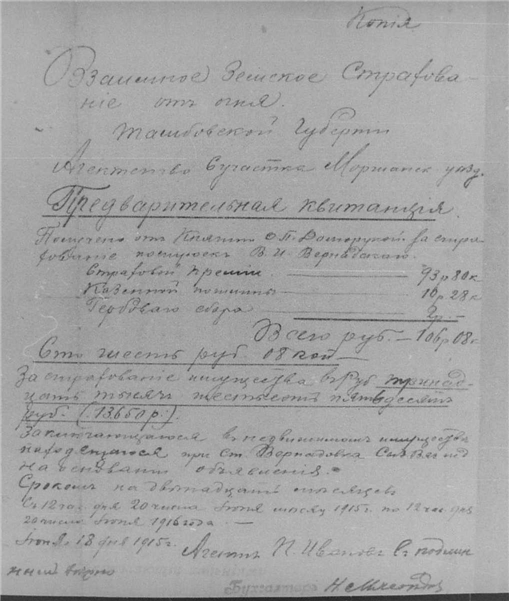 Копія
Взаимное Земское Страхова-
ніе отъ огня.
Тамбовской Губерніи
Агентство 6 участка Моршанск. уѣзд.
Предварительная квитанція.
Получено отъ Княгини О. П. Долгорукой за стра-
хованіе В. И. Вернадскаго.
Страховой преміи 93 р 80 к
Казенной пошлины 10 р 28 к
Гербоваго сбора 2 р. –
Всего руб. – 106 р 08 к
Сто шесть руб. 08 коп –
За страхованіе имущества въ руб. тринад-
цать тысячъ шестьсотъ пятьдесятъ
руб. (13650 р.).
Заключающагося въ недвижимомъ имуществѣ
находящагося при ст. Вернадовка
на основаніи объявленія.
Срокомъ на двѣнадцать мѣсяцевъ
Съ 12 час. дня 20 числа Іюня мѣсяца 1915 г. по 12 час. дня
20 числа Іюня 1916 года. —
Іюня 18 дня 1915 г. Агентъ П. Ивановъ Съ подлин
нымъ вѣрно
Бухгалтеръ